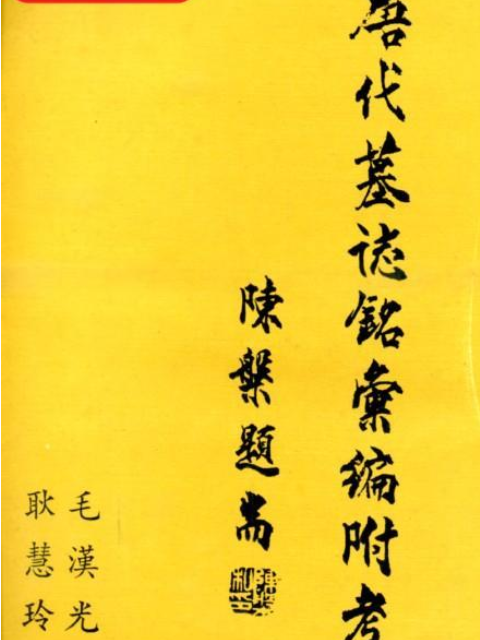 唐代墓誌銘彙編附考
陳槃題耑
毛漢光
耿慧玲